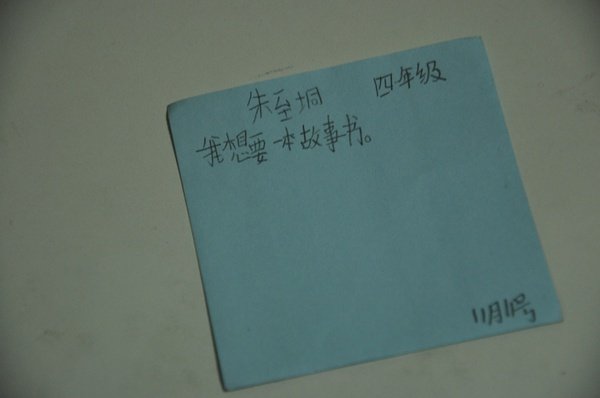 朱至垌 四年级
我想要一本故事书。
11月11号